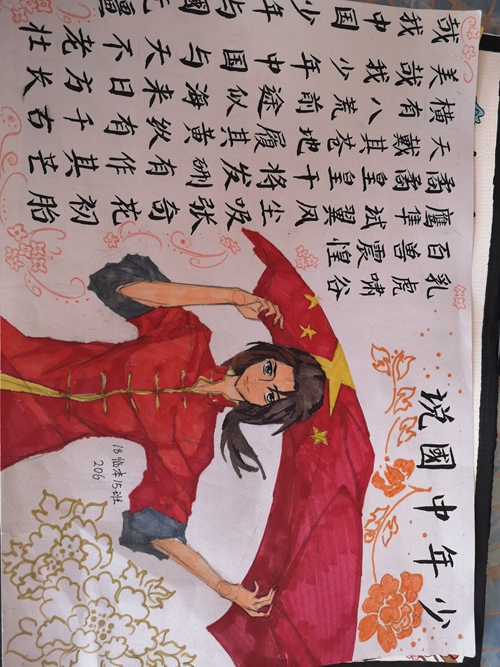 少年中國说
乳虎啸谷
百兽震惶
鹰隼试翼风尘吸张奇花初胎
矞矞皇皇干将发硎有作其芒
天戴其苍地履其黄纵有千古
横有八荒前途似海来日方长
美哉我少年中国与天不老壮
哉我中国少年与國无疆
18临本15班
206